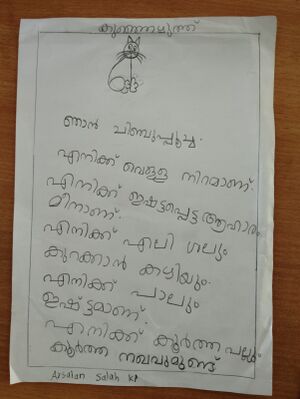 കുഞ്ഞെഴുത്ത്
ഞാൻ ചിഞ്ചുപ്പൂച്ച.
എനിക്ക് വെള്ള നിറമാണ്.
എനിക്ക് ഇഷ്ടപ്പെട്ട ആഹാരം
മീനാണ്.
എനിക്ക് എലി ശല്യം
കുറക്കാൻ കഴിയും.
എനിക്ക് പാലും
ഇഷ്ട്ടമാണ്
എനിക്ക് കൂർത്ത പല്ലും
കൂർത്ത നഖവുമുണ്ട്
Arsalan Salah KP